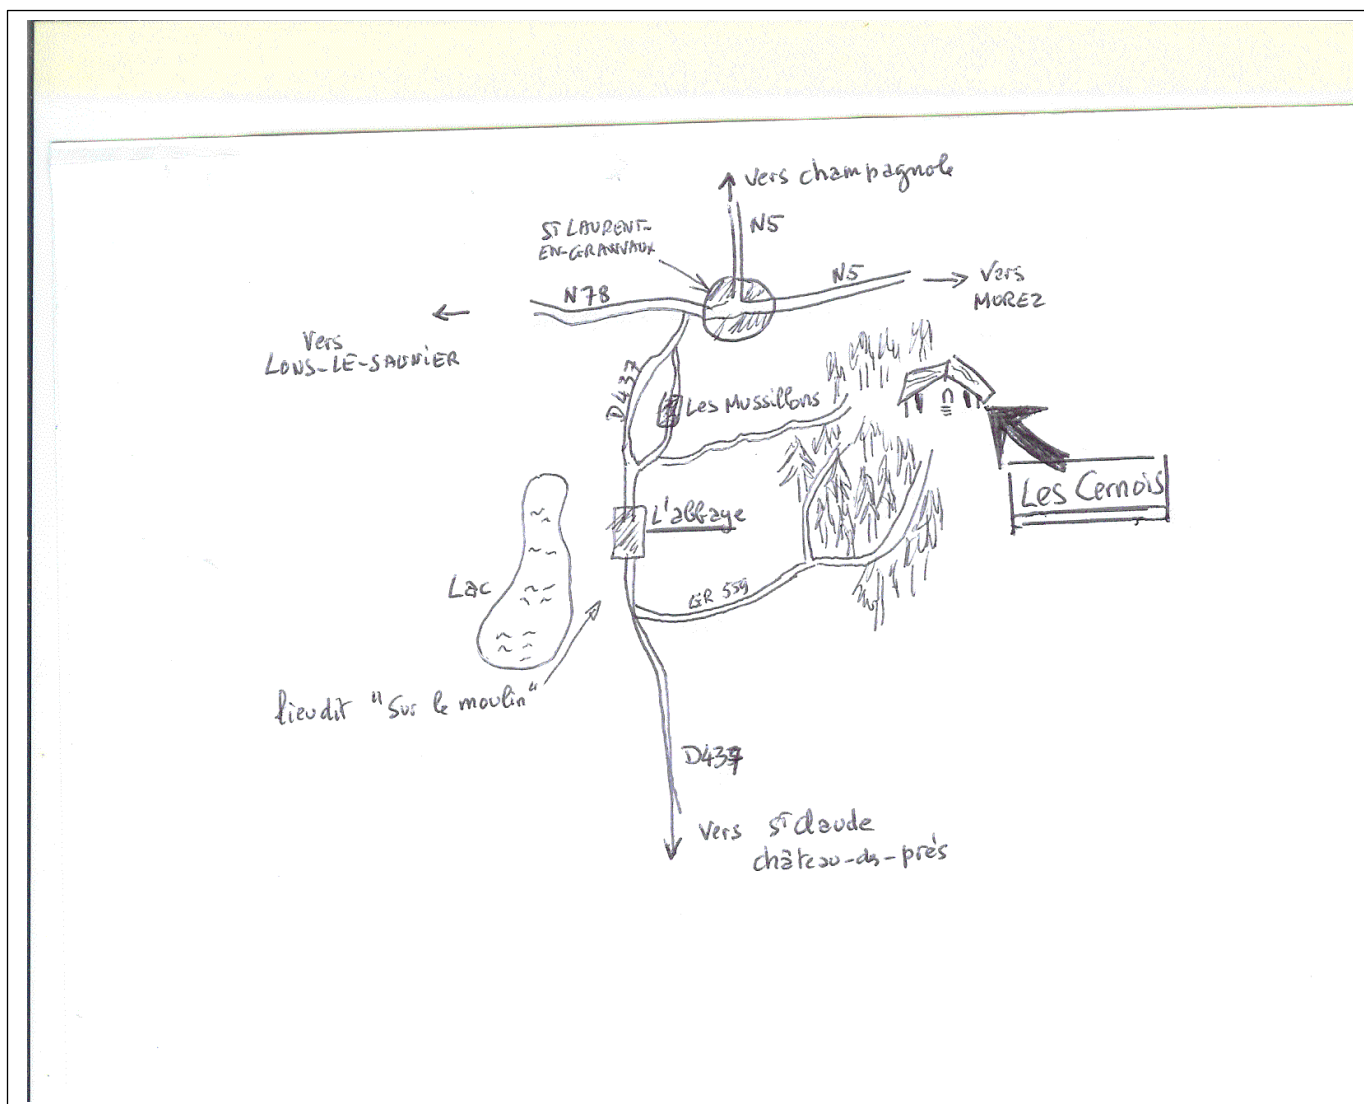 Vers champagnole
N5
ST LAURENT-
EN-GRANVAUX
N5
Vers
MOREZ
N78
Vers
LONS-LE-SAUNIER
D437
Les Mussillons
Les Cernois
L'abbaye
Lac
GR 559
lieudit "Sur le moulin"
D437
Vers St Claude
château-des-prés